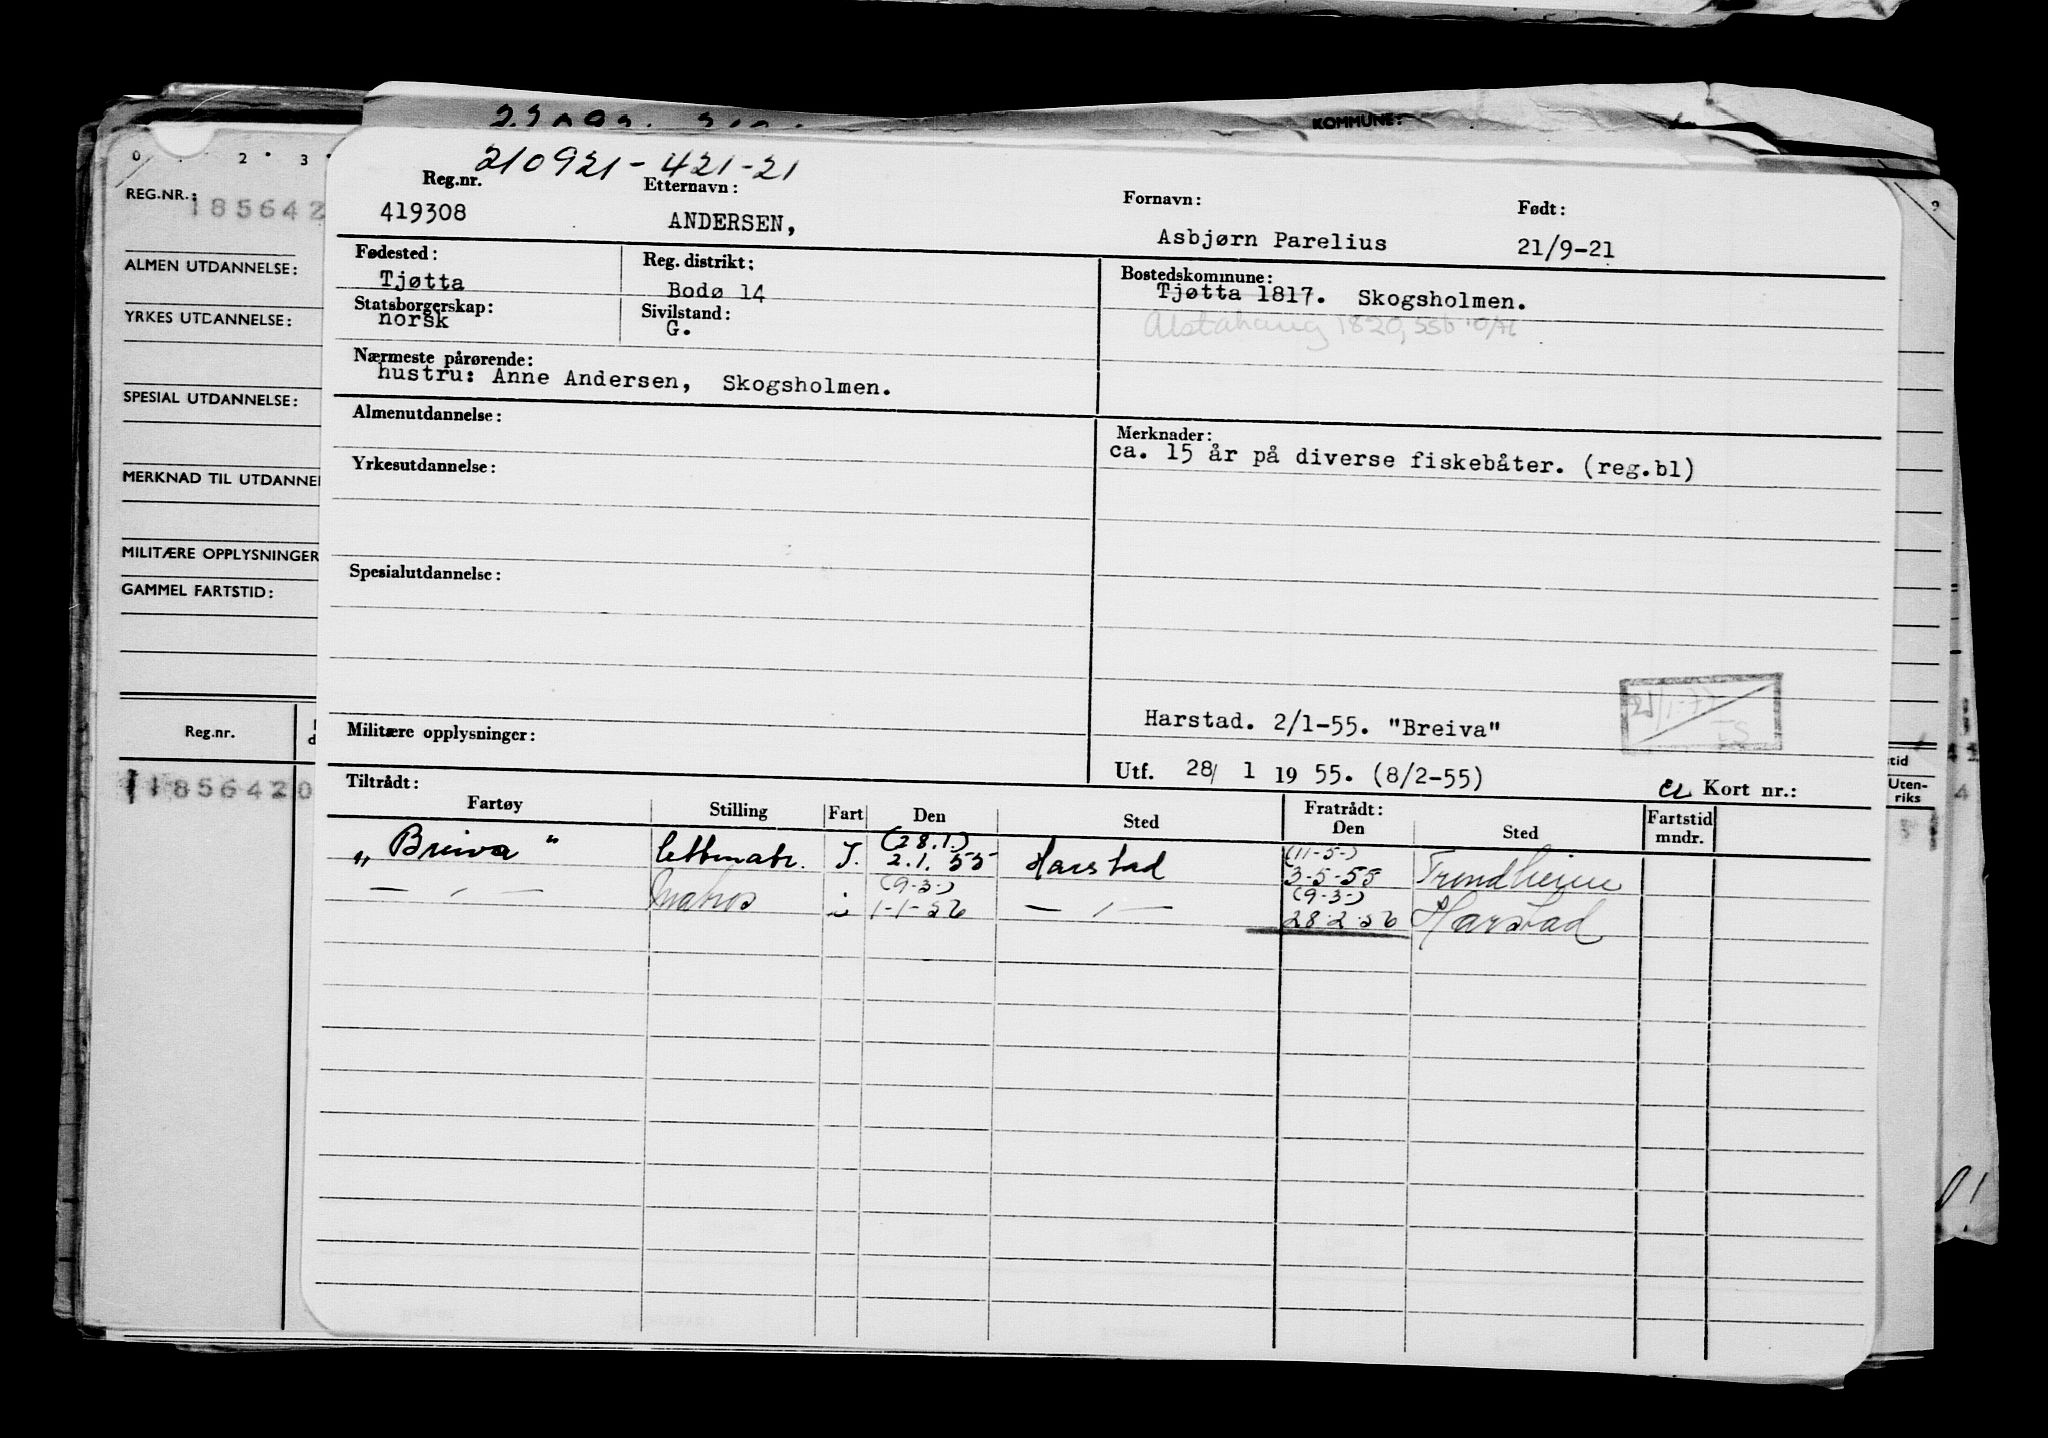 KOMMUNE:
0 . 2 • 3 •
REG.NR.:
185642
ALMEN UTDANNELSE:
YRKES UTDANNELSE:
SPESIAL UTDANNELSE:
MERKNAD TIL UTDANNEL
MILITÆRE OPPLYSNINGER
GAMMEL FARTSTID:
Reg.nr.
1856420
210921-421-21
Reg.nr. Etternavn: Fornavn: Født:
419308 ANDERSEN, Asbjørn Parelius 21/9-21
Fødested: Reg. distrikt: Bostedskommune:
Tjøtta Bodø 14 Tjøtta 1817. Skogsholmen.
Statsborgerskap: Sivilstand:
norsk G. Alstahaug 1820,
Nærmeste pårørende:
hustru: Anne Andersen, Skogsholmen.
Almenutdannelse: Merknader:
ca. 15 år på diverse fiskebåter. (reg.bl)
Yrkesutdannelse:
Spesialutdannelse:
Harstad. 2/1-55. "Breiva"
Militære opplysninger:
Utf. 28/ 1 19 55. (8/2-55) Kort nr.:
Tiltrådt: Fratrådt:
Fartøy Stilling Fart Den Sted Den Sted Fartstid mndr.
(28.1.) (11-5-)
„Breiva" lettmatr. I. 2.1.55 Harstad 3-5-55 Trondheim
(9-3-) (9-3-)
— " — Matros i 1-1-56 — " — 28.2.56 Harstad
tid
Uten-
riks